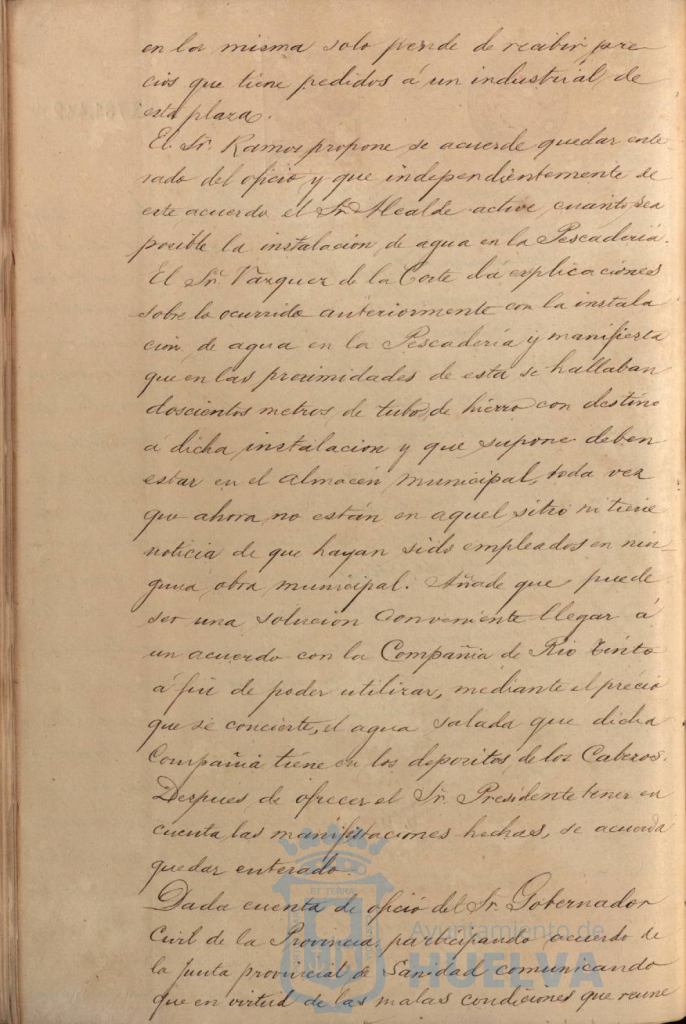 en la misma solo pende de recibir pre-
cios que tiene pedidos á un industrial de
esta plaza.
El Sr. Ramos propone se acuerde quedar ente
rado del oficio y que independientemente de
este acuerdo el Sr. Alcalde active cuanto sea
posible la instalacion de agua en la Pescaderia.
El Sr. Vazquez de la Corte dá explicaciones
sobre lo ocurrido anteriormente con la instala
cion de agua en la Pescaderia y manifiesta
que en las proximidades de esta se hallaban
doscientos metros de tubo de hierro con destino
á dicha instalacion y que supone deben
estar en el almacén municipal, toda vez
que ahora no están en aquel sitio ni tiene
noticia de que hayan sido empleados en nin-
guna obra municipal. Añade que puede
ser una solución conveniente llegar á
un acuerdo con la Compañia de Rio Tinto
á fin de poder utilizar, mediante el precio
que se concierte, el agua salada que dicha
Compañia tiene en los depositos de los Cabezos.
Despues de ofrecer el Sr. Presidente tener en
cuenta las manifestaciones hechas, se acuerda
quedar enterado.
Dada cuenta de oficio del Sr. Gobernador
Civil de la Provincia, participando acuerdo de
la Junta provincial de Sanidad comunicando
que en virtud de las malas condiciones que reune
Ayuntamiento de
HUELVA